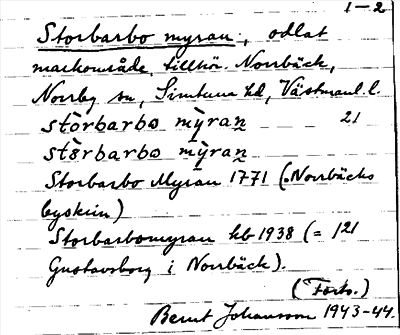 1–2
Storbarbo myran, odlat
markområde, tillhör. Norrbäck,
Norrby sn, Simtuna hd, Västmanl. l.
stòrbarbo mỳran̲ 21
stòrbarbo mỳran̲
Storbarbo Myran 1771 (Norrbäcks
byskrin)
Storbarbomyran hb 1938 (= 121
Gustavsborg i Norrbäck).
(Forts.)
Bernt Johansson 1943–44.